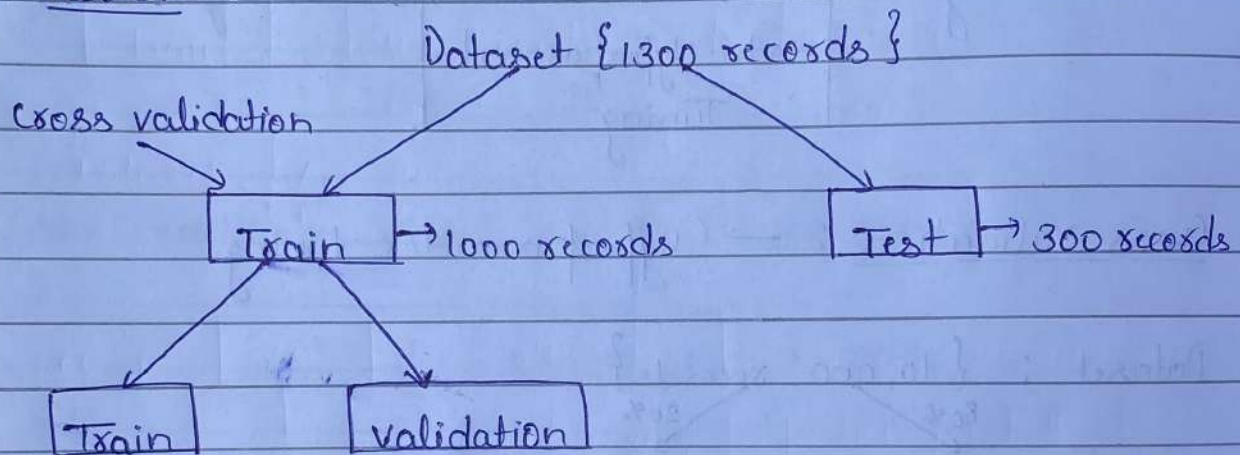 Dataset {1300 records}
Cross validation
Train → 1000 records
Test → 300 records
Train
validation